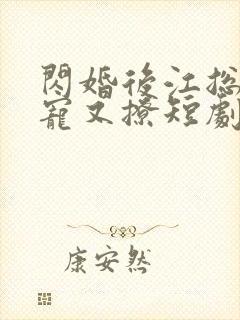 閃婚後江总
寵又撩短劇
康安然